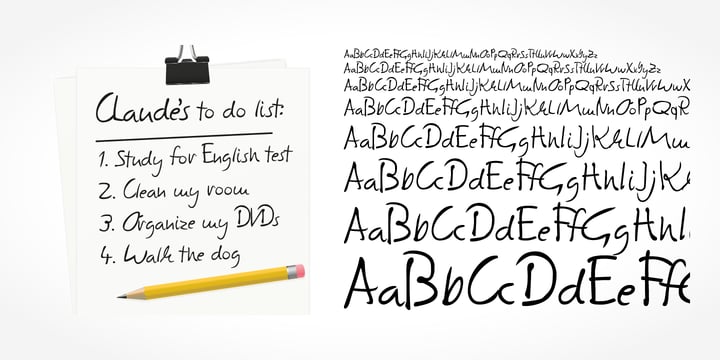 Claude's to do list:
1. Study for English test
2. Clean my room
3. Organize my DVDs
4. Walk the dog
AaBbCcDdEeFfGgHhIiJjKkLlMmNnOoPpQqRrSsTtUuVvWwXxYyZz
AaBbCcDdEeFfGgHhIiJjKkLlMmNnOoPpQqRrSsTtUuVvWwXxYyZz
AaBbCcDdEeFfGgHhIiJjKkLlMmNnOoPpQqRrSsTtUuVv
AaBbCcDdEeFfGgHhIiJjKkLlMmNnOoPpQq
AaBbCcDdEeFfGgHhIiJjKkLlM
AaBbCcDdEeFfGgHhIiJjK
AaBbCcDdEeFfGgHhI
AaBbCcDdEeFf